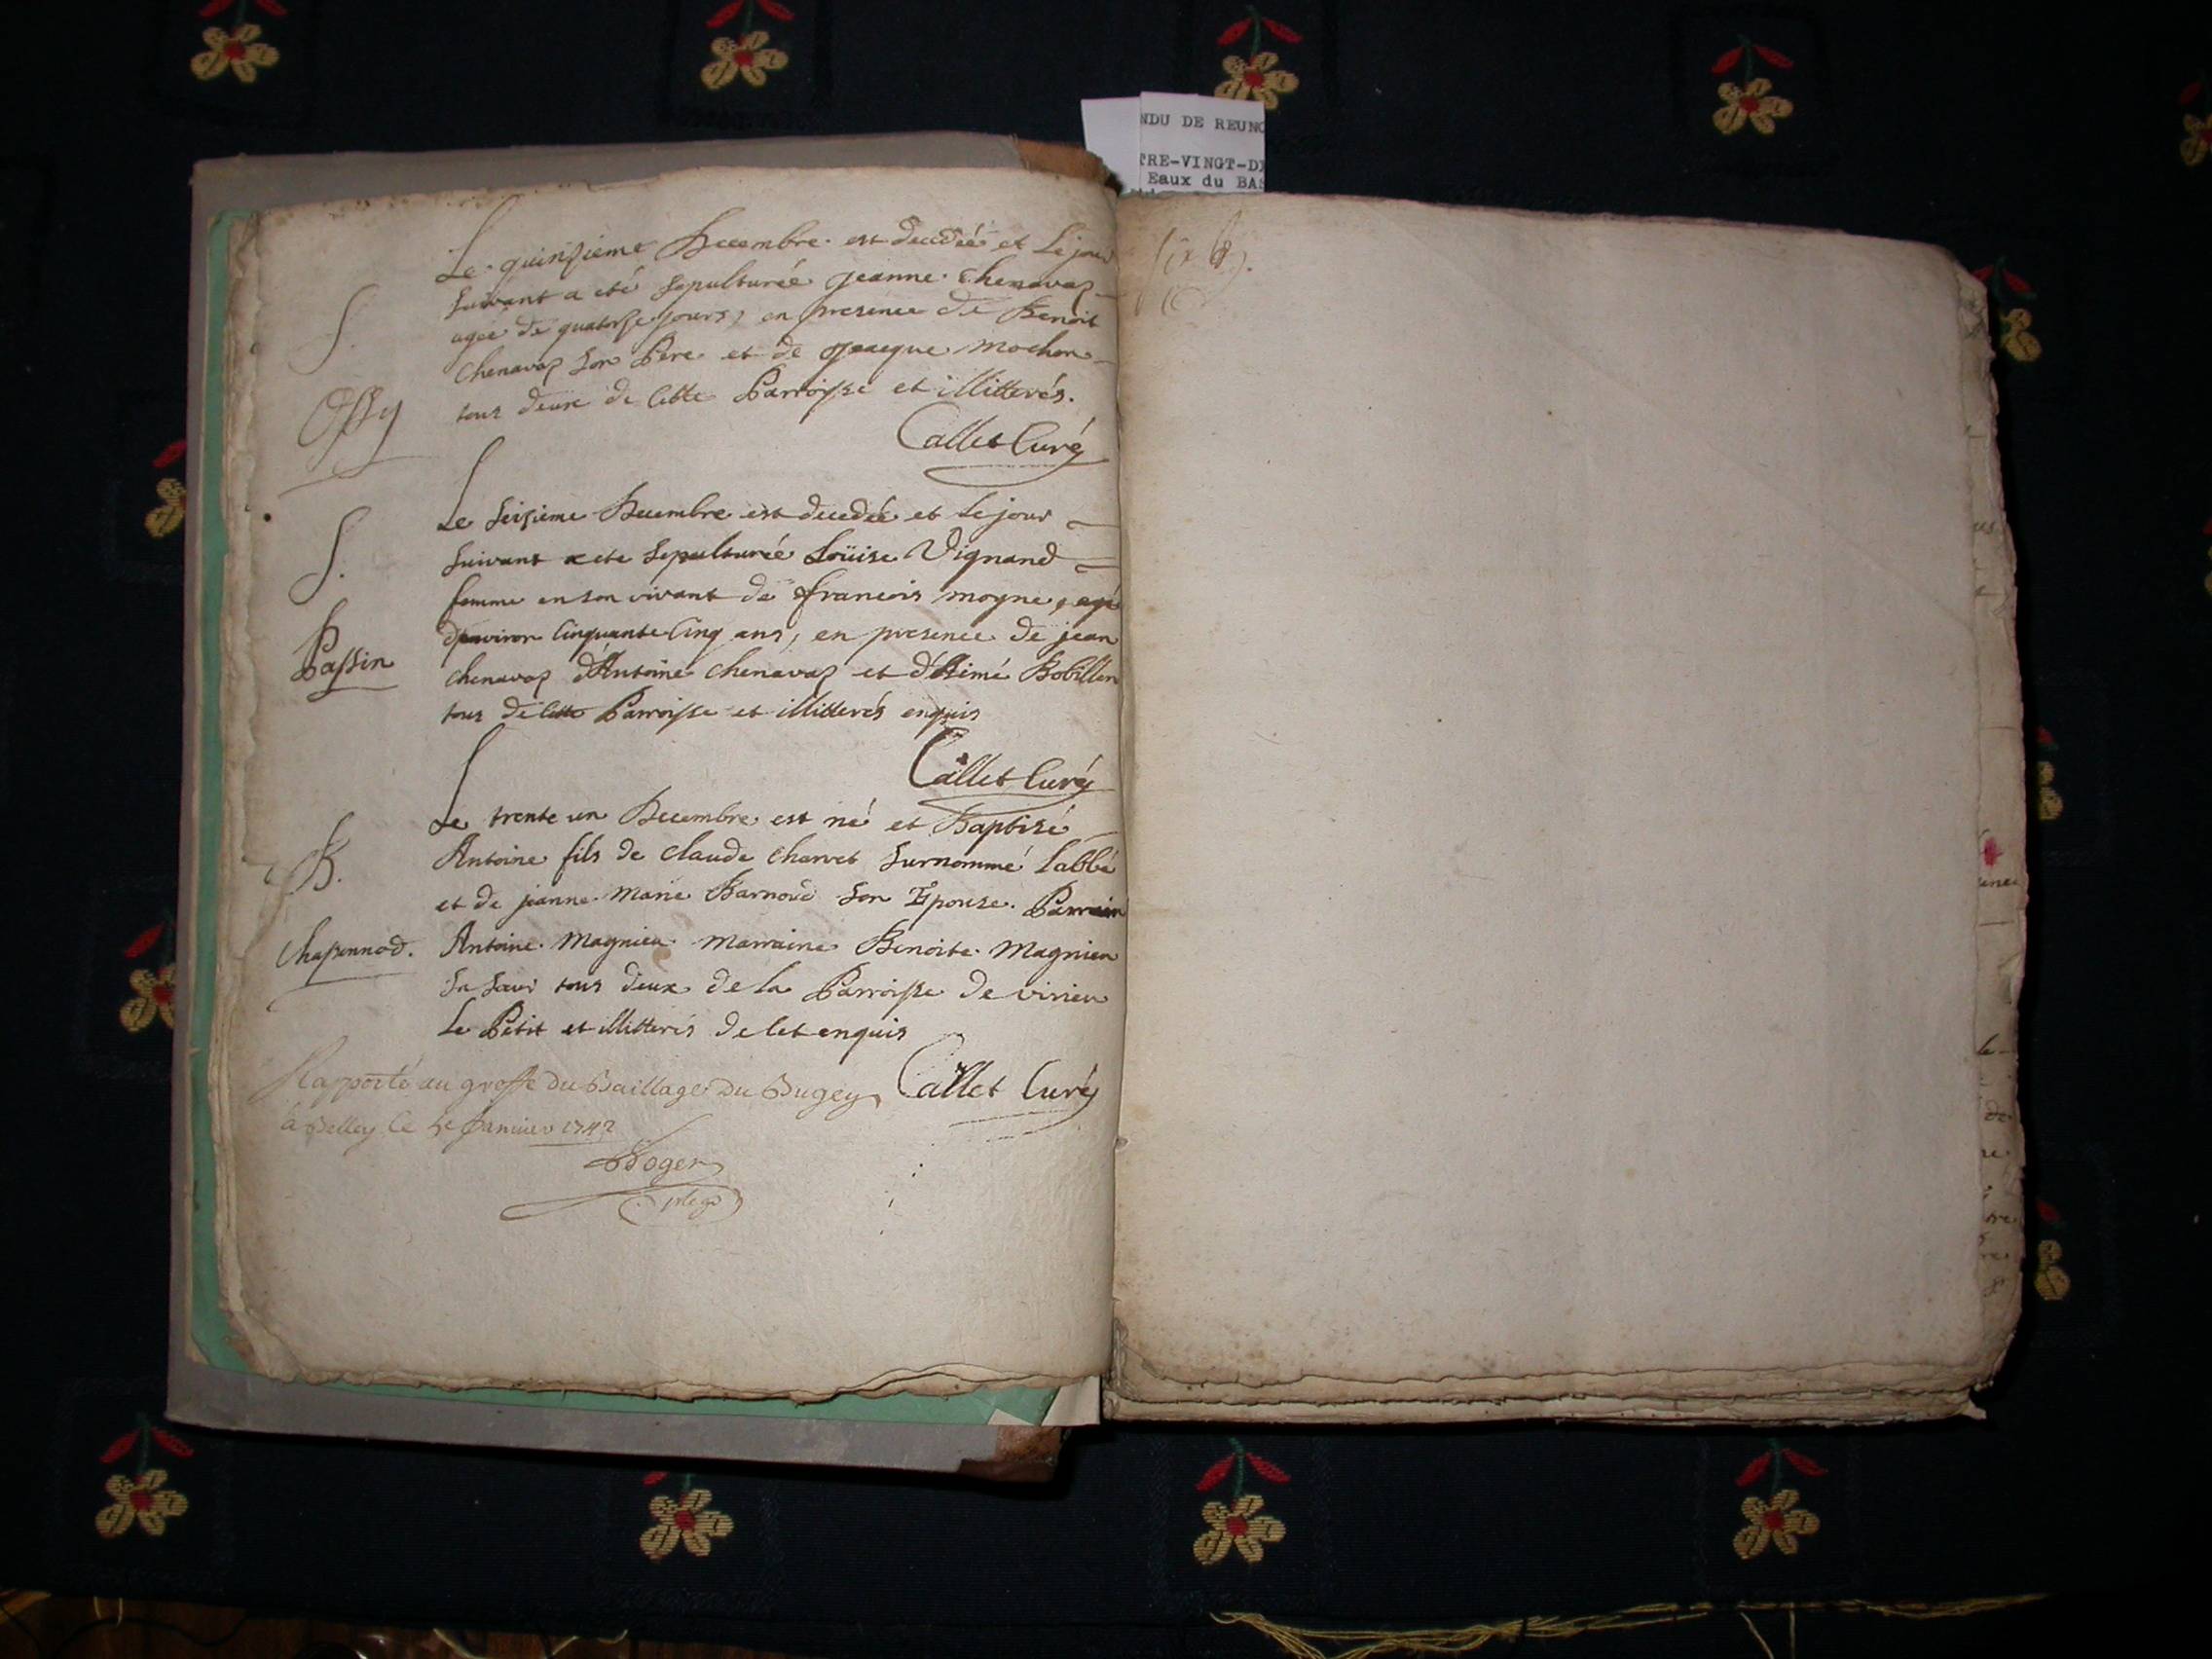 NDU DE REUNO
TRE-VINGT-DI
Eaux du BAS
Le quinzieme Decembre est decedée et Le jour
Suivant a eté Sepulturée Jeanne Chenavaz
S.
agée de quatorze jours, en presence de Benoit
Chenavaz Son Pere et de Jacque Mochon
Ossy
tous deux de Cette Parroisse et illitterés.
Callet Curé
Le Seizieme Decembre est decedée et Le jour
S.
Suivant a ete Sepulturée Loüise Vignand
femme en son vivant de francois moyne, agé
Passin
d'environ Cinquante Cinq ans, en presence de jean
Chenavaz d'Antoine Chenavaz et d'Aimé Bobillon
tous de Cette Parroisse et illitterés enquis
Callet Curé
Le trente un Decembre est né et Baptisé
B.
Antoine fils de Claude Charvet Surnommé Labbé
et de jeanne Marie Barnoud Son Epouse. Parrain
Antoine Magnien Marraine Benoite Magnien
Sa Sœur tous deux de la Parroisse de virieu
Le Petit et illitterés de Cet enquis
Callet Curé
Rapporté au greffe du Baillage Du Bugey
à Belley Ce Janvier 1742
Roger